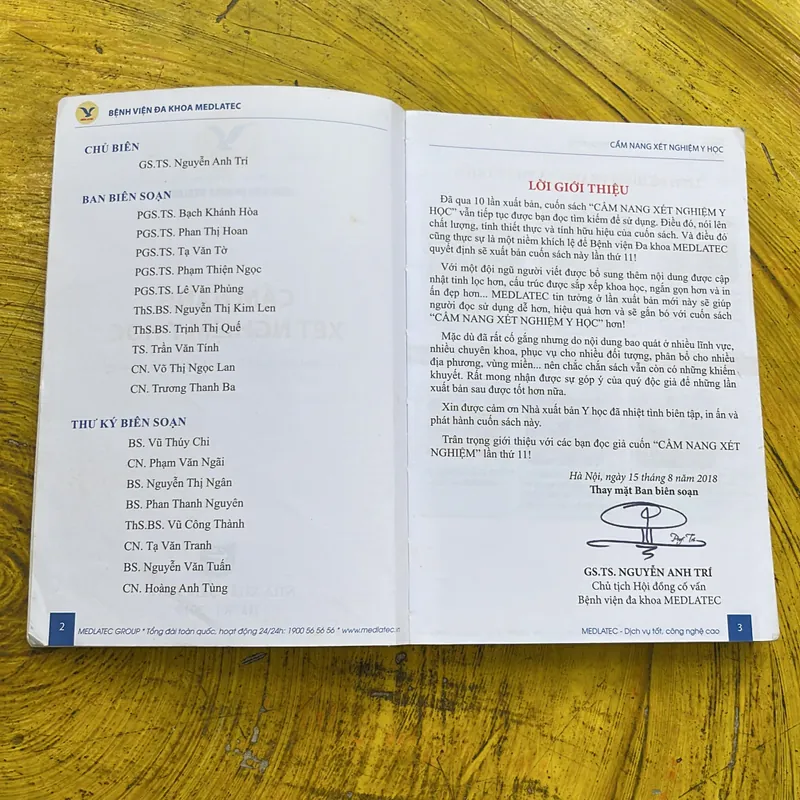 BỆNH VIỆN ĐA KHOA MEDLATEC
CHỦ BIÊN
GS.TS. Nguyễn Anh Trí
BAN BIÊN SOẠN
PGS.TS. Bạch Khánh Hòa
PGS.TS. Phan Thị Hoan
PGS.TS. Tạ Văn Tờ
PGS.TS. Phạm Thiện Ngọc
PGS.TS. Lê Văn Phủng
ThS.BS. Nguyễn Thị Kim Len
ThS.BS. Trịnh Thị Quế
TS. Trần Văn Tính
CN. Võ Thị Ngọc Lan
CN. Trương Thanh Ba
THƯ KÝ BIÊN SOẠN
BS. Vũ Thúy Chi
CN. Phạm Văn Ngãi
BS. Nguyễn Thị Ngân
BS. Phan Thanh Nguyên
ThS.BS. Vũ Công Thành
CN. Tạ Văn Tranh
BS. Nguyễn Văn Tuấn
CN. Hoàng Anh Tùng
2
MEDLATEC GROUP * Tổng đài toàn quốc, hoạt động 24/24h: 1900 56 56 56 * www.medlatec.
CẨM NANG XÉT NGHIỆM Y HỌC
LỜI GIỚI THIỆU
Đã qua 10 lần xuất bản, cuốn sách “CẨM NANG XÉT NGHIỆM Y
HỌC” vẫn tiếp tục được bạn đọc tìm kiếm để sử dụng. Điều đó, nói lên
chất lượng, tính thiết thực và tính hữu hiệu của cuốn sách. Và điều đó
cũng thực sự là một niềm khích lệ để Bệnh viện Đa khoa MEDLATEC
quyết định sẽ xuất bản cuốn sách này lần thứ 11!
Với một đội ngũ người viết được bổ sung thêm nội dung được cập
nhật tinh lọc hơn, cấu trúc được sắp xếp khoa học, ngắn gọn hơn và in
ấn đẹp hơn... MEDLATEC tin tưởng ở lần xuất bản mới này sẽ giúp
người đọc sử dụng dễ hơn, hiệu quả hơn và sẽ gắn bó với cuốn sách
“CẨM NANG XÉT NGHIỆM Y HỌC” hơn!
Mặc dù đã rất cố gắng nhưng do nội dung bao quát ở nhiều lĩnh vực,
nhiều chuyên khoa, phục vụ cho nhiều đối tượng, phân bố cho nhiều
địa phương, vùng miền... nên chắc chắn sách vẫn còn có những khiếm
khuyết. Rất mong nhận được sự góp ý của quý độc giả để những lần
xuất bản sau được tốt hơn nữa.
Xin được cảm ơn Nhà xuất bản Y học đã nhiệt tình biên tập, in ấn và
phát hành cuốn sách này.
Trân trọng giới thiệu với các bạn đọc giả cuốn “CẨM NANG XÉT
NGHIỆM” lần thứ 11!
Hà Nội, ngày 15 tháng 8 năm 2018
Thay mặt Ban biên soạn
GS.TS. NGUYỄN ANH TRÍ
Chủ tịch Hội đồng cố vấn
Bệnh viện đa khoa MEDLATEC
MEDLATEC - Dịch vụ tốt, công nghệ cao
3